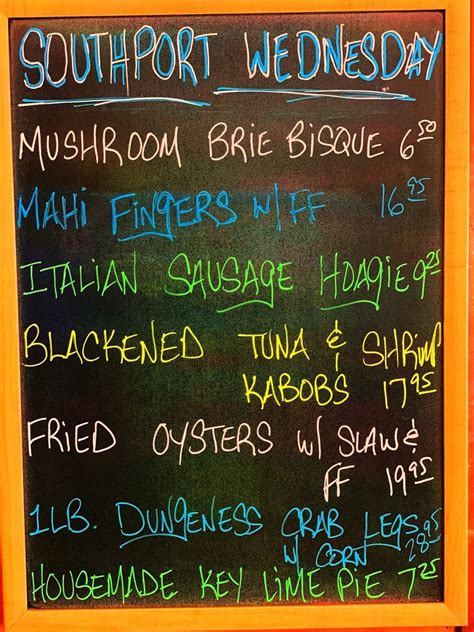 SOUTHPORT WEDNESDAY
MUSHROOM BRIE BISQUE 6 50
MAHI FINGERS W/ FF 16 95
ITALIAN SAUSAGE HOAGIE 9 25
BLACKENED TUNA & SHRIMP
KABOBS 17 95
FRIED OYSTERS W/ SLAW &
FF 19 95
1LB. DUNGENESS CRAB LEGS
W/ CORN 28 95
HOUSEMADE KEY LIME PIE 7 25